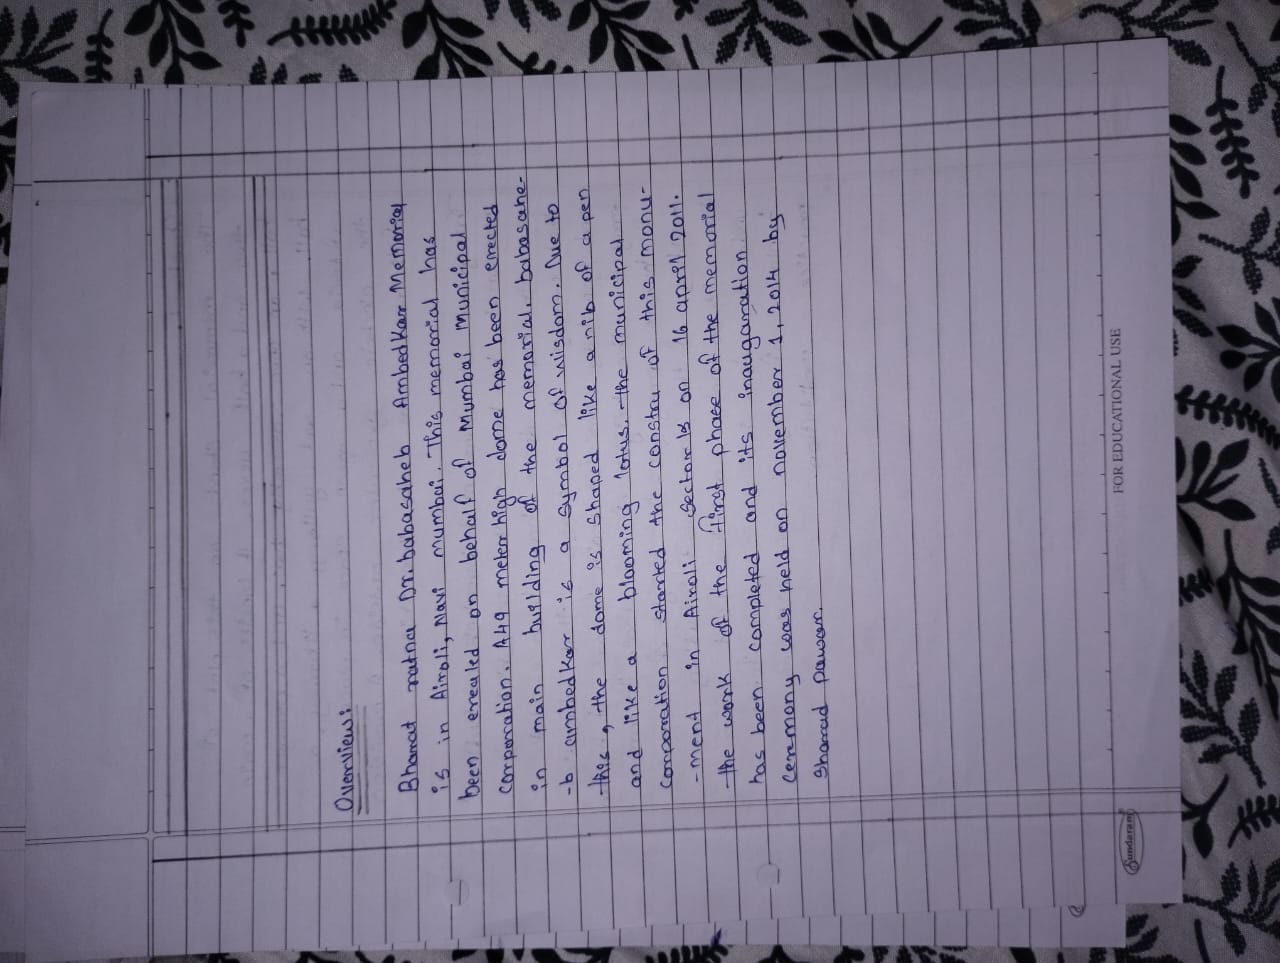 Overview:
Bharat ratna Dr. babasaheb Ambedkar Memorial
is in Airoli, Navi mumbai. This memorial has
been erealed on behalf of Mumbai Municipal
corporation. A49 meter high dome has been erected
in main building of the memorial. babasahe-
-b ambedkar is a symbol of wisdom. Due to
this, the dome is shaped like a nib of a pen
and like a blooming lotus. the municipal
corporation started the constru of this monu-
-ment in Airoli Sector on 16 april 2011.
the work of the first phase of the memorial
has been completed and its inaugaration
ceremony was held on november 1, 2014 by
Sharad pawar.
Sundaram
FOR EDUCATIONAL USE